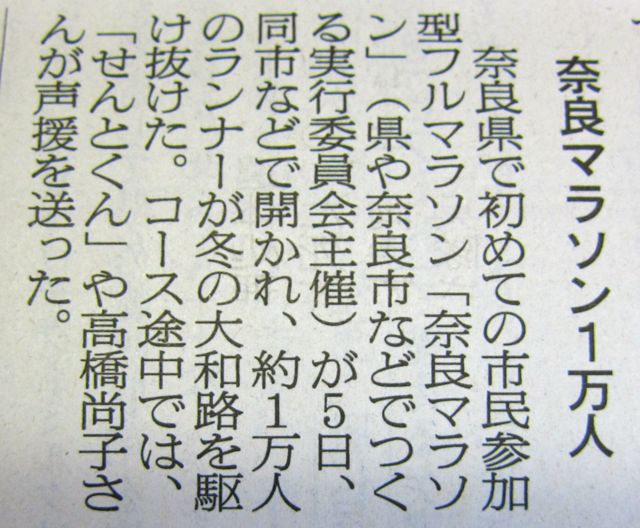 奈良マラソン1万人
奈良県で初めての市民参加
型フルマラソン「奈良マラソ
ン」（県や奈良市などでつく
る実行委員会主催）が5日、
同市などで開かれ、約1万人
のランナーが冬の大和路を駆
け抜けた。コース途中では、
「せんとくん」や高橋尚子さ
んが声援を送った。